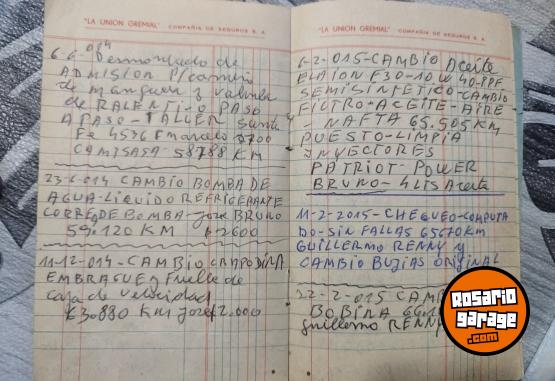 "LA UNION GREMIAL" COMPAÑIA DE SEGUROS S. A.
6-6-014 Desmontado de
ADMISION P/cambio
de manguera y valvula
de RALENTI O PASO
A PASO-TALLER Santa
Fe 4536 Marcelo $700
CAMISASA 58788 KM
23-6-014 CAMBIO BOMBA DE
AGUA-LIQUIDO REFRIGERANTE
CORREA DE BOMBA-Jose BRUNO
59.120 KM $2600
11-12-014-CAMBIO CRAPODINA
EMBRAGUE y Fuelle de
caja de Velocidad
63.880 KM Jose $2.000
"LA UNION GREMIAL" COMPAÑIA DE SEGUROS S. A.
6-2-015-CAMBIO Aceite
ELAION F30-10W40-PPF
SEMISINTETICO-CAMBIO
FILTRO-ACEITE-AIRE
-NAFTA 65.505KM
PUESTO-LIMPIA
INYECTORES
PATRIOT-POWER
BRUNO-4LTS Aceite
11-2-2015-CHEQUEO-COMPUTA
DO-SIN FALLAS 65670KM
GUILLERMO RENNY y
CAMBIO BUJIAS ORIGINAL
22-2-015 CAMB
BOBINA
guillermo RENNY
Rosario
garage
.com